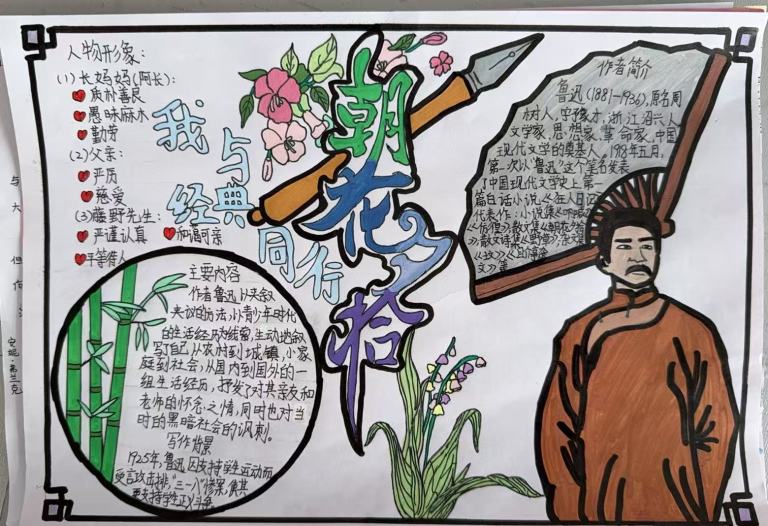 人物形象:
(1)长妈妈(阿长):
质朴善良
愚昧麻木
勤劳
(2)父亲:
严厉
慈爱
(3)藤野先生:
严谨认真 和蔼可亲
平等待人
我与
经典
同行
朝花夕拾
作者简介
鲁迅(1881-1936),原名周
树人,字豫才,浙江绍兴人
文学家、思想家、革命家,中国
现代文学的奠基人,1918年五月,
第一次以"鲁迅"这个笔名发表
了中国现代文学史上第一
篇白话小说《狂人日记
代表作:小说集《呐喊
《彷徨》,散文集《朝花夕拾
散文诗集《野草》,杂文集
《坟》《且介亭
文》等
主要内容
作者鲁迅以夹叙
夹议的方法,以青少年时代
的生活经历为线索,生动地叙
写了自己从农村到城镇,小家
庭到社会,从国内到国外的一
组生活经历,抒发了对其亲友和
老师的怀念之情,同时也对当
时的黑暗社会的讽刺。
写作背景
1925年,鲁迅因支持学生运动而
受言攻击排,"三一八"惨案,
支持学生正义斗争
与
大
但
何
安妮·弗兰克